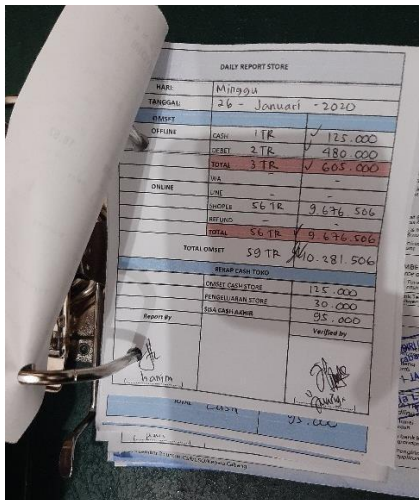 DAILY REPORT STORE
HARI Minggu
TANGGAL 26 - Januari - 2020
OMSET
OFFLINE CASH 1 TR ✓ 125.000
DEBET 2 TR ✓ 480.000
TOTAL 3 TR ✓ 605.000
WA - -
ONLINE LINE - -
SHOPEE 56 TR 9.676.506
REFUND - -
TOTAL 56 TR 9.676.506
TOTAL OMSET 59 TR 10.281.506
REKAP CASH TOKO
OMSET CASH STORE 125.000
PENGELUARAN STORE 30.000
SISA CASH AKHIR 95.000
Report By Verified by
TOTAL Cash 95.000